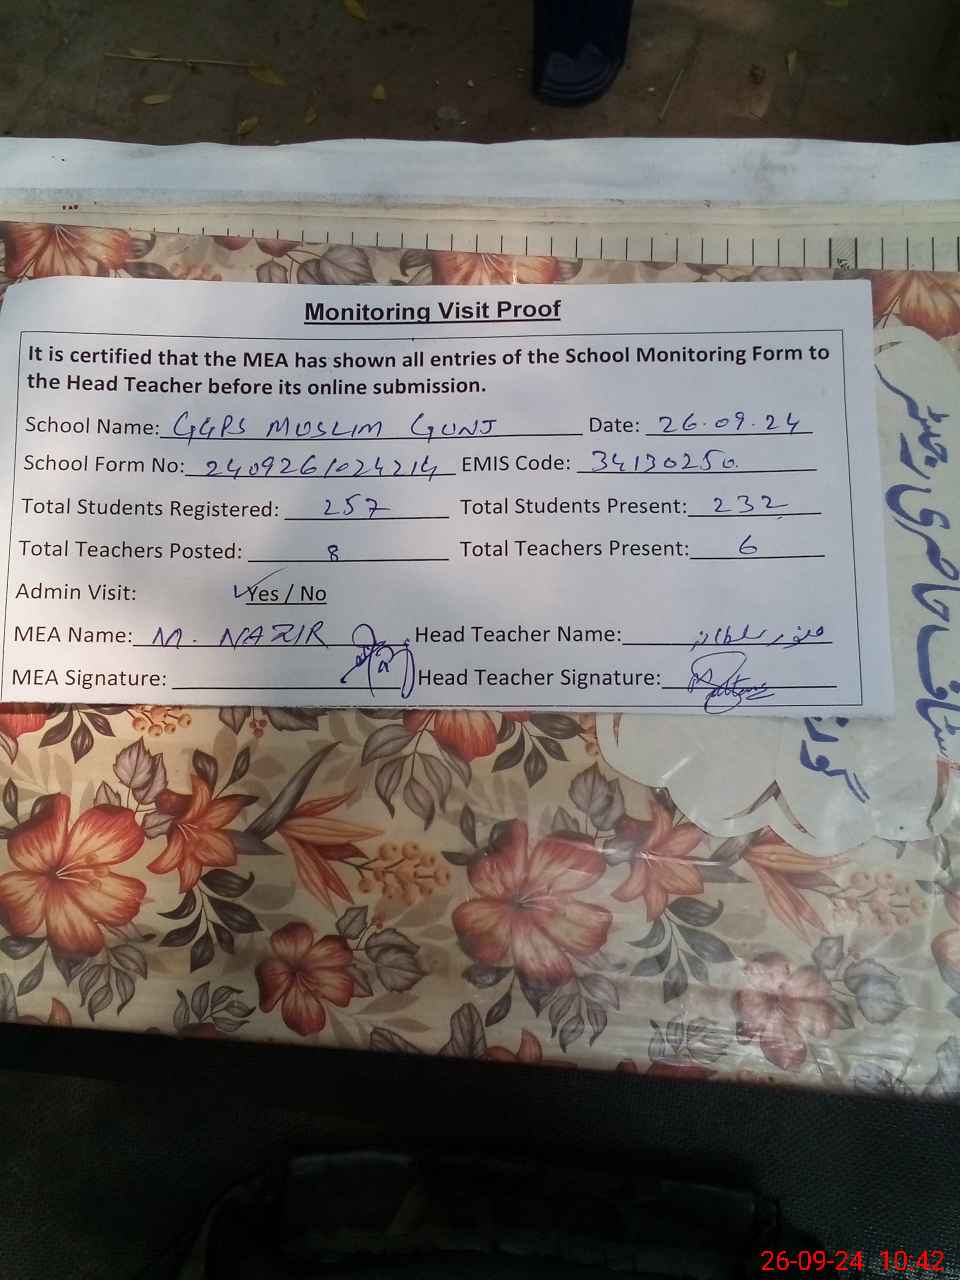 Monitoring Visit Proof
It is certified that the MEA has shown all entries of the School Monitoring Form to
the Head Teacher before its online submission.
School Name: GGPS MUSLIM GUNJ Date: 26.09.24
School Form No: 2409261024214 EMIS Code: 34130250
Total Students Registered: 257 Total Students Present: 232
Total Teachers Posted: 8 Total Teachers Present: 6
Admin Visit: Yes / No
MEA Name: M. NAZIR Head Teacher Name:
MEA Signature: Head Teacher Signature:
26-09-24 10:42